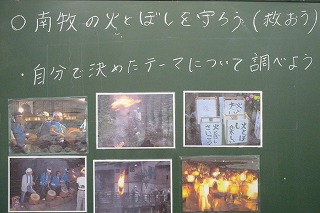 ○ 南牧の火とぼしを守ろう(救おう)
・自分で決めたテーマについて調べよう